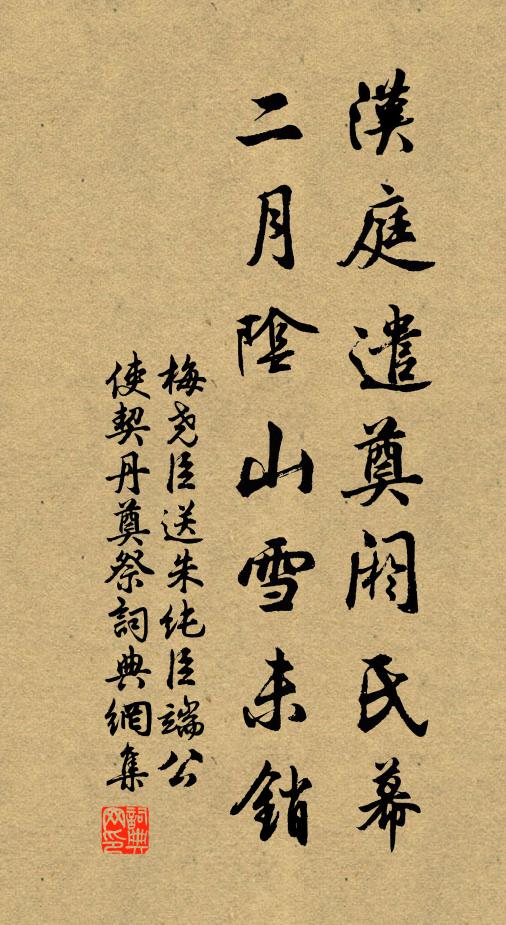 漢庭遣奠閼氏幕
二月陰山雪未銷
梅尧臣送朱純臣端公
使契丹奠祭詞典網集
詞典网印